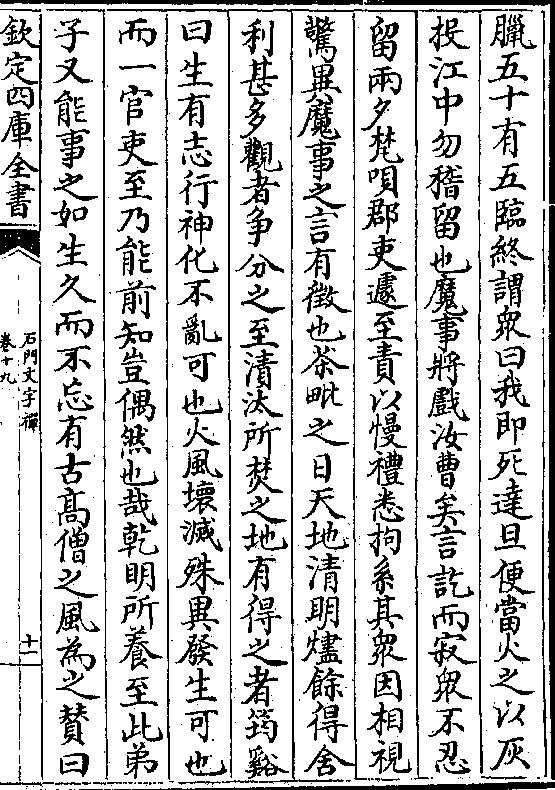 臘五十有五臨終謂衆曰我即死達旦便當火之以灰
投江中勿稽留也魔事將戲汝曹矣言訖而寂衆不忍
留兩夕梵唄郡吏遽至責以慢禮悉拘系其衆因相視
驚異魔事之言有徵也茶毗之日天地清明燼餘得舍
利甚多觀者争分之至清汰所焚之地有得之者筠谿
曰生有志行神化不亂可也火風壞滅殊異發生可也
而一官吏至乃能前知豈偶然也哉乾明所養至此弟
子又能事之如生久而不忘有古髙僧之風為之賛曰
欽定四庫全書
石門文字禪
卷十九
十一